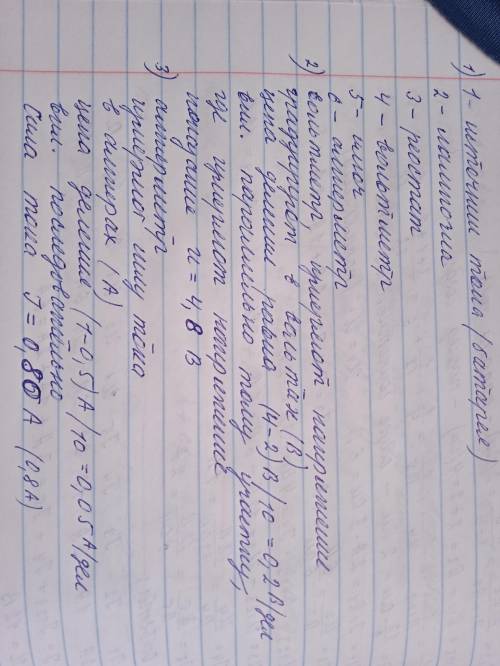 1) 1 - источник тока (батарея)
2 - лампочка
3 - реостат
4 - вольтметр
5 - ключ
6 - амперметр
2) вольтметр, измеряют напряжение
градуируют в вольтах (В)
цена деления равна (4-2)В/10=0,2В/дел
вкл. параллельно тому участку,
где измеряют напряжение
показание u = 4,8 В
3) амперметр
измеряют силу тока
в амперах (А)
цена деление (1-0,5)А/10=0,05А/дел
вкл. последовательно
Сила тока J = 0,80А (0,8А)